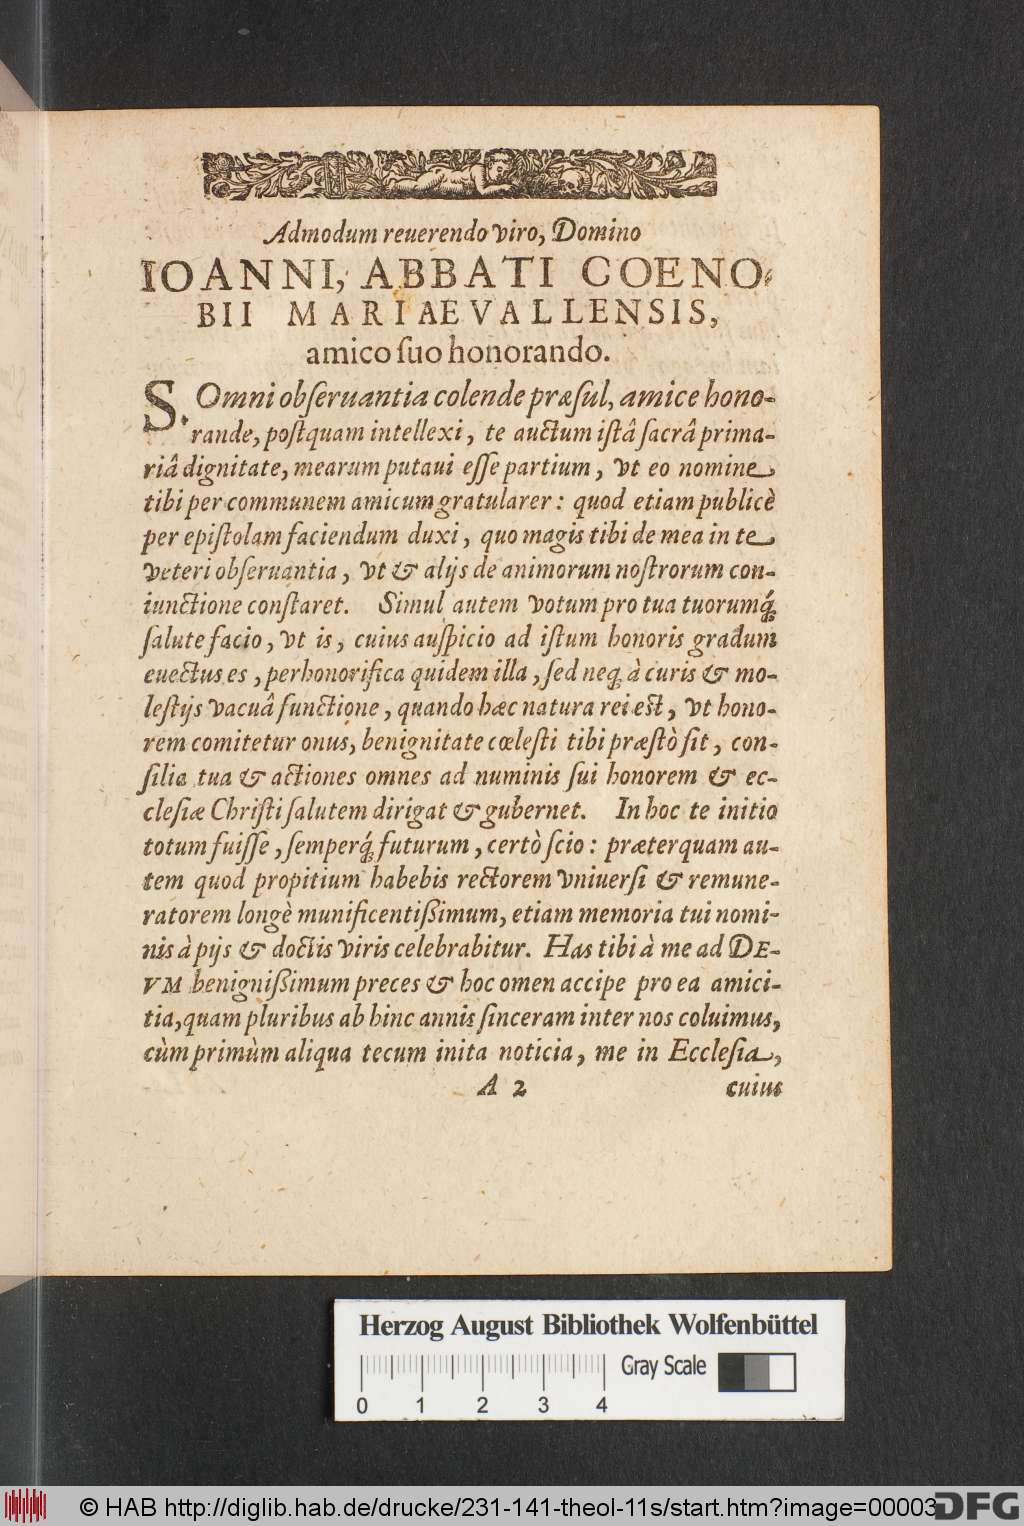 Admodum reuerendo viro, Domino
IOANNI, ABBATI COENO-
BII MARIAEVALLENSIS,
amico ſuo honorando.
S. Omni obſeruantia colende præſul, amice hono-
rande, poſtquam intellexi, te auctum iſtâ ſacrâ prima-
riâ dignitate, mearum putaui eſſe partium, vt eo nomine
tibi per communem amicum gratularer: quod etiam publicè
per epiſtolam faciendum duxi, quo magis tibi de mea in te
veteri obſeruantia, vt & alijs de animorum noſtrorum con-
iunctione conſtaret. Simul autem votum pro tua tuorumq́;
ſalute facio, vt is, cuius auſpicio ad iſtum honoris gradum
euectus es, perhonorifica quidem illa, ſed neq; à curis & mo-
leſtijs vacuâ functione, quando hæc natura rei eſt, vt hono-
rem comitetur onus, benignitate cœleſti tibi præſtò ſit, con-
ſilia tua & actiones omnes ad numinis ſui honorem & ec-
cleſiæ Chriſti ſalutem dirigat & gubernet. In hoc te initio
totum fuiſſe, ſemperq́; futurum, certò ſcio: præterquam au-
tem quod propitium habebis rectorem vniuerſi & remune-
ratorem longè munificentißimum, etiam memoria tui nomi-
nis à pijs & doctis viris celebrabitur. Has tibi à me ad DE-
VM benignißimum preces & hoc omen accipe pro ea amici-
tia, quam pluribus ab hinc annis ſinceram inter nos coluimus,
cùm primùm aliqua tecum inita noticia, me in Eccleſia,
A 2 cuius
Herzog August Bibliothek Wolfenbüttel
Gray Scale
0 1 2 3 4
© HAB http://diglib.hab.de/drucke/231-141-theol-11s/start.htm?image=00003
DFG